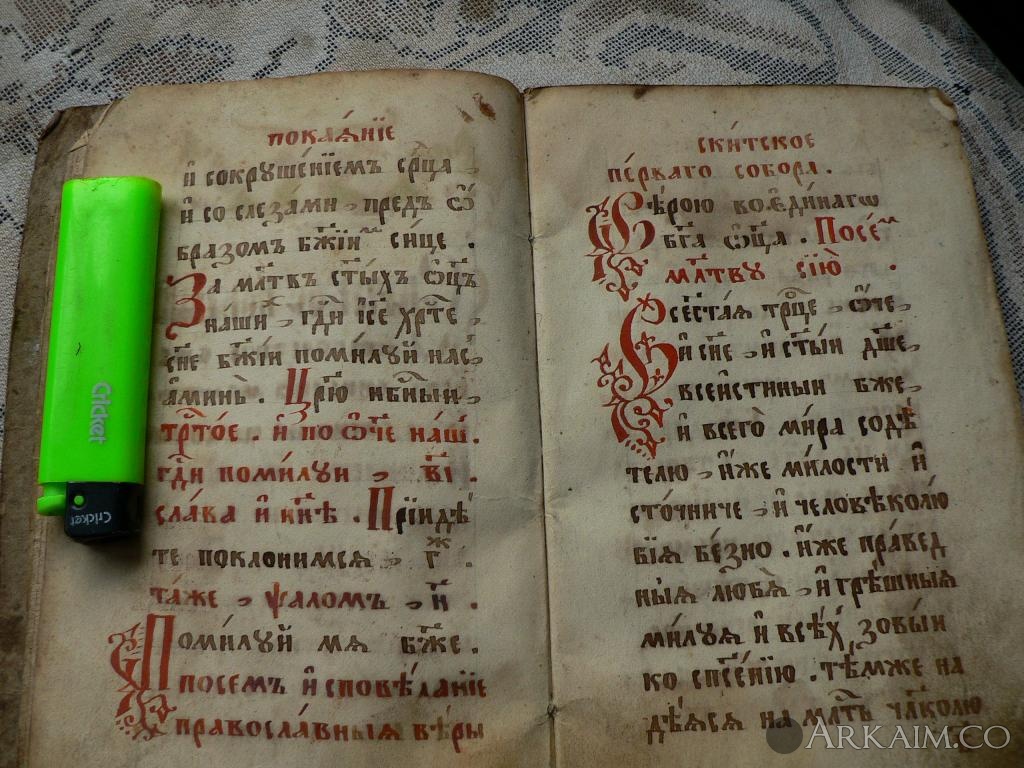 покаѧ́нїе
и҆ сокрꙋше́нїемъ срⷣца
и҆ со слеза́ми, предъ ѡ҆́
бразомъ бж҃їиⷨ си́це .
За мл҃твъ ст҃ыхъ ѻ҆ц҃ъ
на́ши, гдⷭ҇и і҆се хрⷭ҇те
сн҃е бж҃їи поми́лꙋй нас,
а҆ми́нь . Цр҃ю нбⷭ҇ныи,
трⷭ҇то́е . и҆ по ѻ҆́ч҃е на́ш .
гдⷭ҇и поми́лꙋи, в҃і .
сла́ва и҆ нн҃ѣ . Прїидѣ́
те поклонимсѧ, г҃ⷤ .
та́же, ѱало́мъ, н҃ .
Поми́лꙋй мѧ бж҃е .
посемъ и҆сповѣ́данїе
правосла́вныѧ вѣ́ры
ски́тское
пе́рваго собора .
Вѣ́рою во є҆ди́наго
бг҃а ѻ҆ц҃а . Посеⷨ
мл҃твꙋ сїю̀ .
Всест҃а́ѧ трⷪ҇це, ѻ҆́ч҃е,
и҆ сн҃е, и҆ ст҃ы́и дш҃е,
всеи́стинныи бж҃е,
и҆ всего̀ ми́ра содѣ́
телю, и҆́же ми́лости и҆
сто́чниче, и҆ человѣколю́
бїѧ бе́зно . и҆́же пра́вед
ныѧ любѧ̀, и҆ грѣ́шныѧ
ми́лꙋѧ и҆ всѣ́хъ зовы́и
ко спⷭ҇е́нїю . тѣ́мже на
дѣ́ѧсѧ на млⷭ҇ть чл҃колю
ARKAIM.CO
Cricket
Cricket